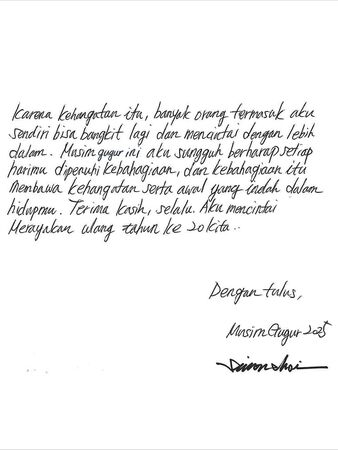 Karena kehangatan itu, banyak orang termasuk aku
sendiri bisa bangkit lagi dan mencintai dengan lebih
dalam. Musim gugur ini aku sungguh berharap setiap
harimu dipenuhi kebahagiaan, dan kebahagiaan itu
membawa kehangatan serta awal yang indah dalam
hidupmu. Terima kasih, selalu. Aku mencintai
Merayakan ulang tahun ke 20 kita..
Dengan tulus,
Musim Gugur 2025